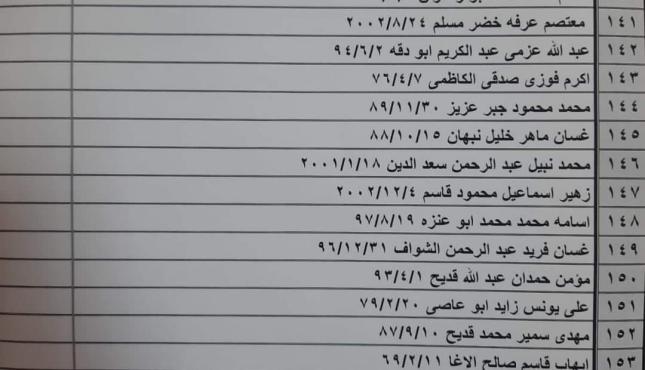 ١٤١ معتصم عرفه خضر مسلم ٢٠٠٢/٨/٢٤
١٤٢ عبد الله عزمى عبد الكريم ابو دقه ٩٤/٦/٢
١٤٣ اكرم فوزى صدقى الكاظمى ٧٦/٤/٧
١٤٤ محمد محمود جبر عزيز ٨٩/١١/٣٠
١٤٥ غسان ماهر خليل نبهان ٨٨/١٠/١٥
١٤٦ محمد نبيل عبد الرحمن سعد الدين ٢٠٠١/١/١٨
١٤٧ زهير اسماعيل محمود قاسم ٢٠٠٢/١٢/٤
١٤٨ اسامه محمد محمد ابو عنزه ٩٧/٨/١٩
١٤٩ غسان فريد عبد الرحمن الشواف ٩٦/١٢/٣١
١٥٠ مؤمن حمدان عبد الله قديح ٩٣/٤/١
١٥١ على يونس زايد ابو عاصى ٧٩/٢/٢٠
١٥٢ مهدى سمير محمد قديح ٨٧/٩/١٠
١٥٣ ايهاب قاسم صالح الاغا ٦٩/٢/١١